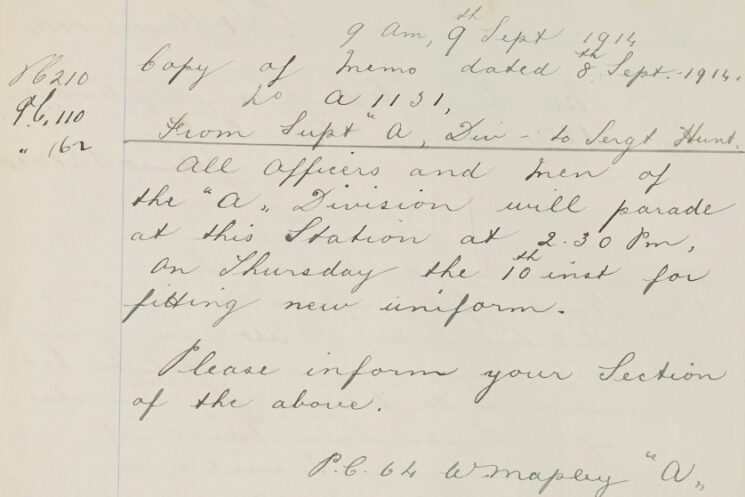 9 am, 9th Sept 1914
Copy of Memo dated 8th Sept. 1914.
PC 210
No A 1131,
PC, 110
" 162
From Supt "A" Div - to Sergt Hunt.
All Officers and Men of
the "A" Division will parade
at this Station at 2.30 Pm,
on Thursday the 10th inst for
fitting new uniform.
Please inform your Section
of the above.
P.C. 64 W Mapley "A"